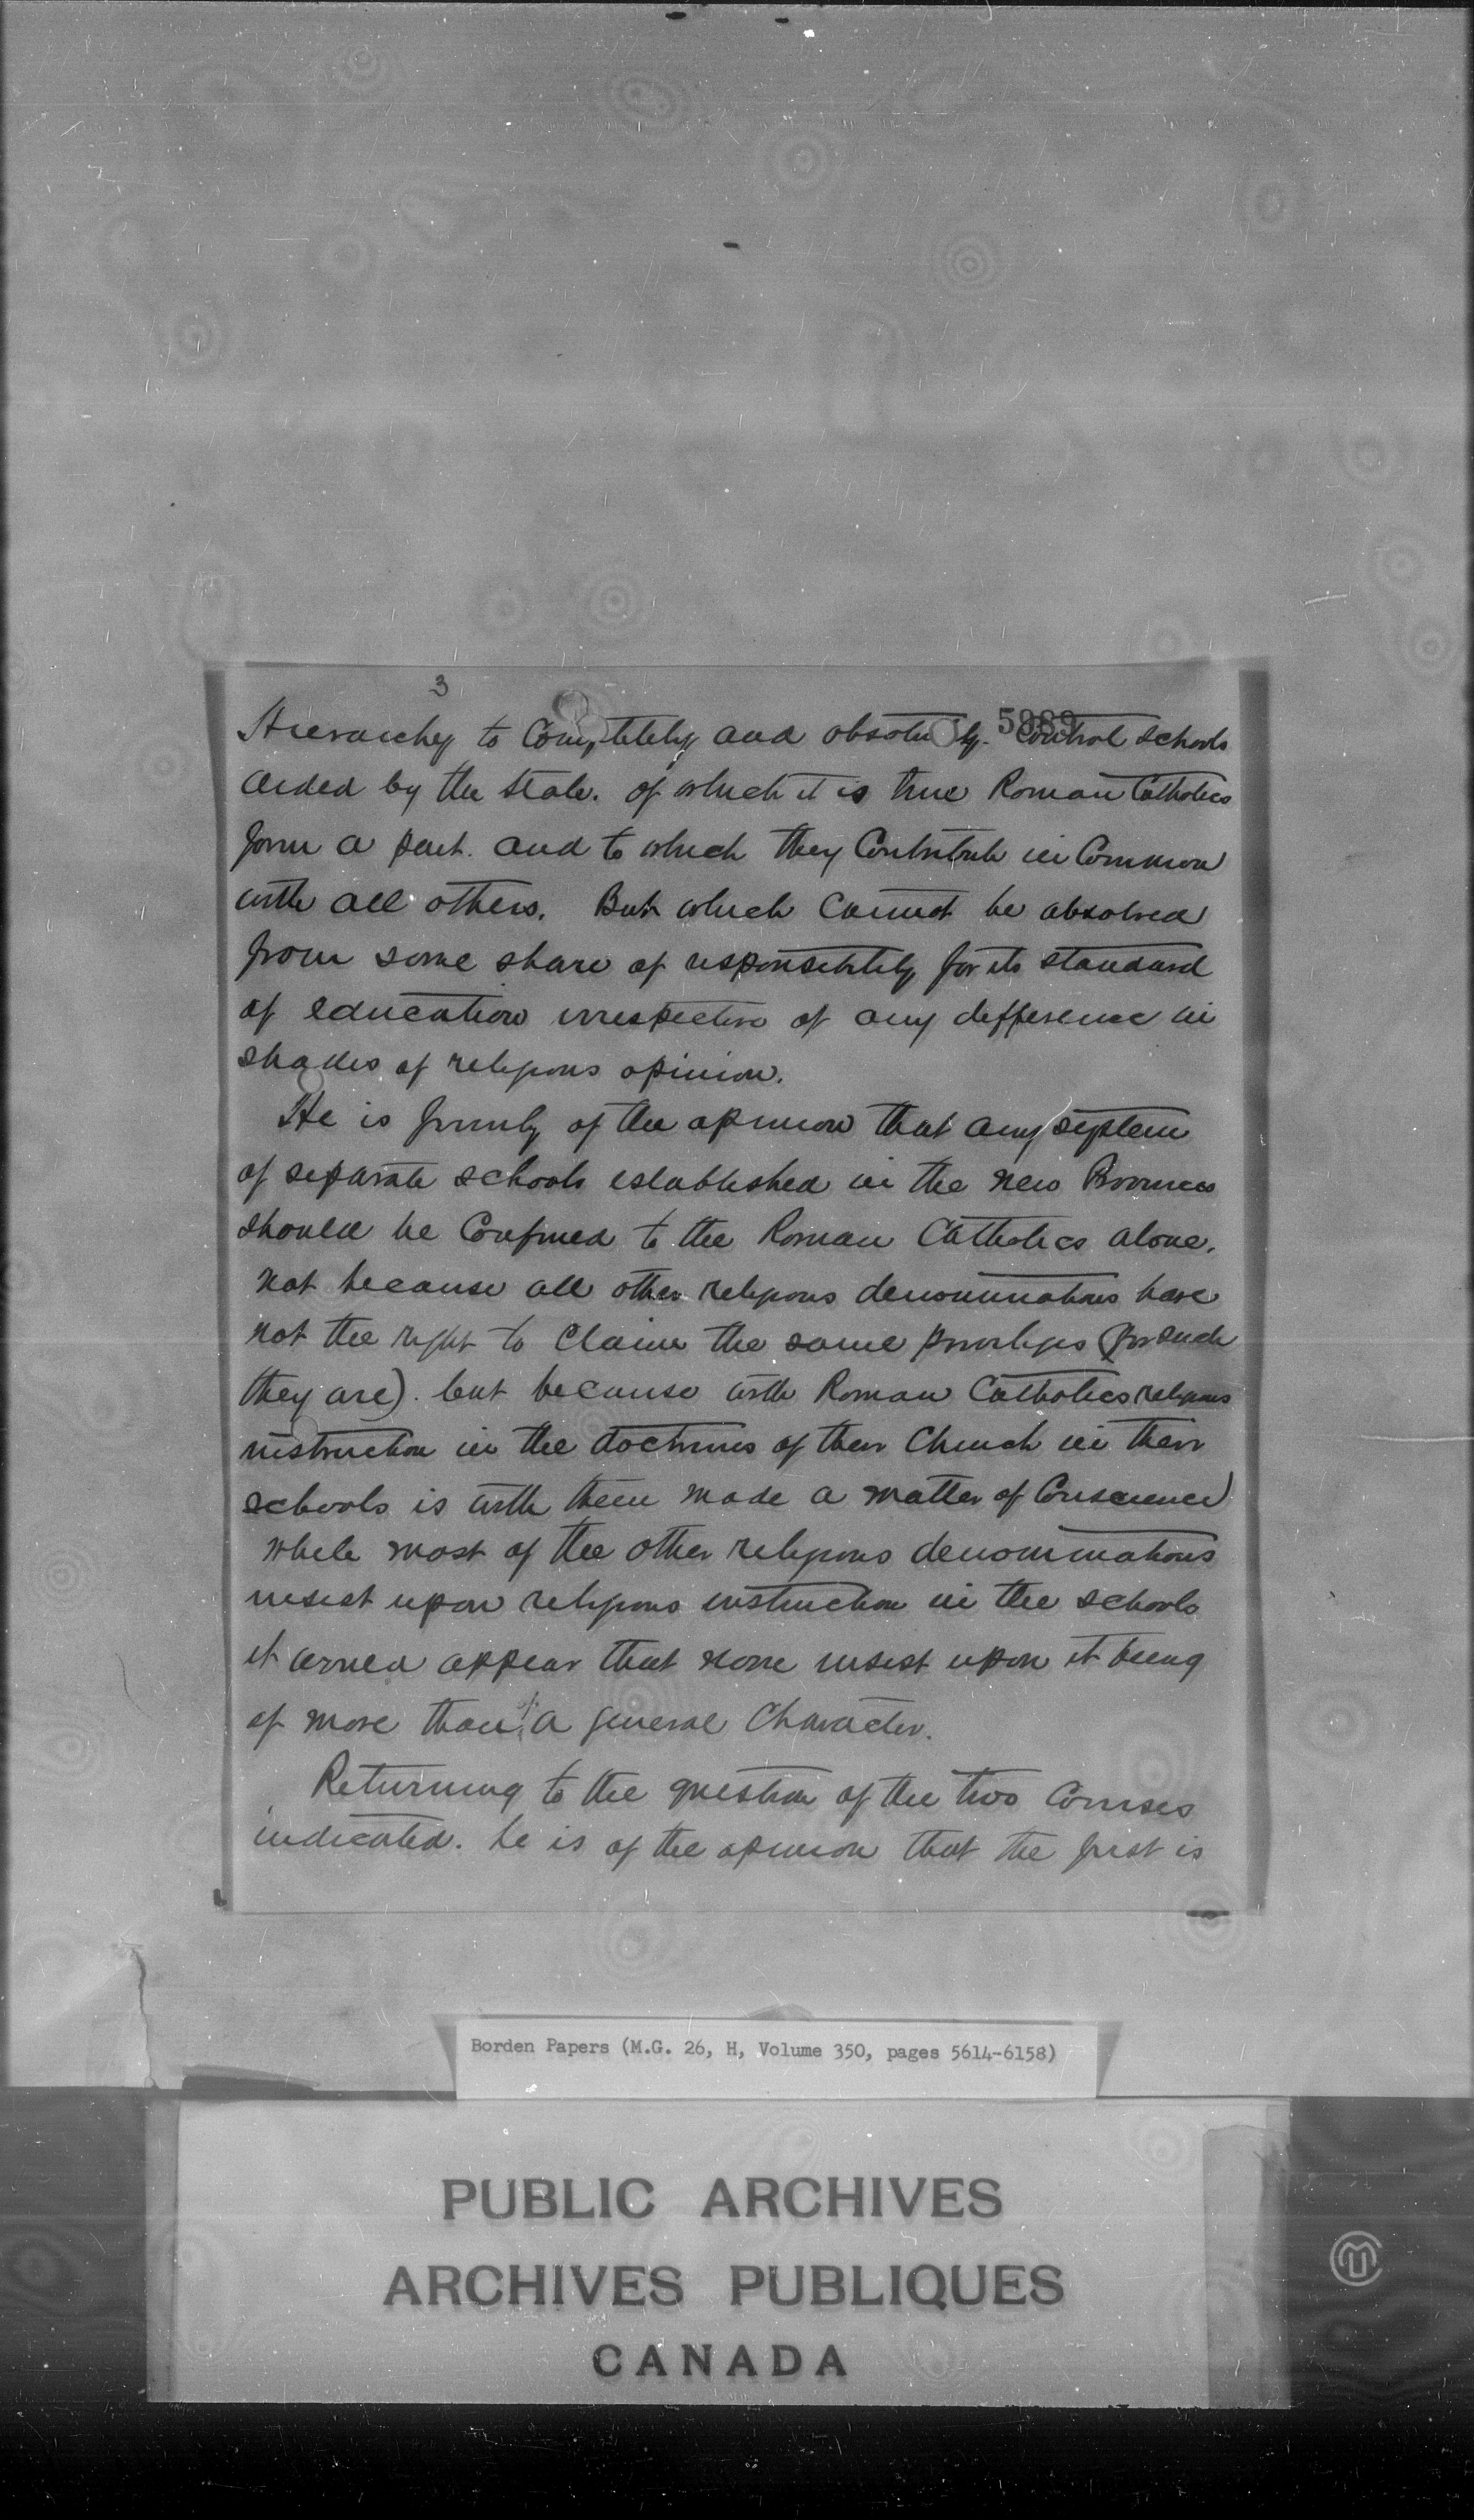 3
5989
Hierarchy to Completely and absolutely control schools
aided by the State. of which it is true Roman Catholics
form a part. and to which they Contribute in Common
with all others. But which cannot be absolved
from some share of responsibility for its standard
of education irrespective of any difference in
shades of religious opinion.
He is firmly of the opinion that any system
of separate schools established in the new Provinces
should be Confined to the Roman Catholics alone.
not because all other religious denominations have
not the right to Claim the same privileges (for such
they are). but because with Roman Catholics religious
instruction in the doctrines of their Church in their
schools is with them made a matter of Conscience
while most of the other religious denominations
insist upon religious instruction in the schools
it would appear that none insist upon it being
of more than of a general Character.
Returning to the question of the two Courses
indicated. he is of the opinion that the first is
Borden Papers (M.G. 26, H, Volume 350, pages 5614-6158)
PUBLIC ARCHIVES
ARCHIVES PUBLIQUES
CANADA